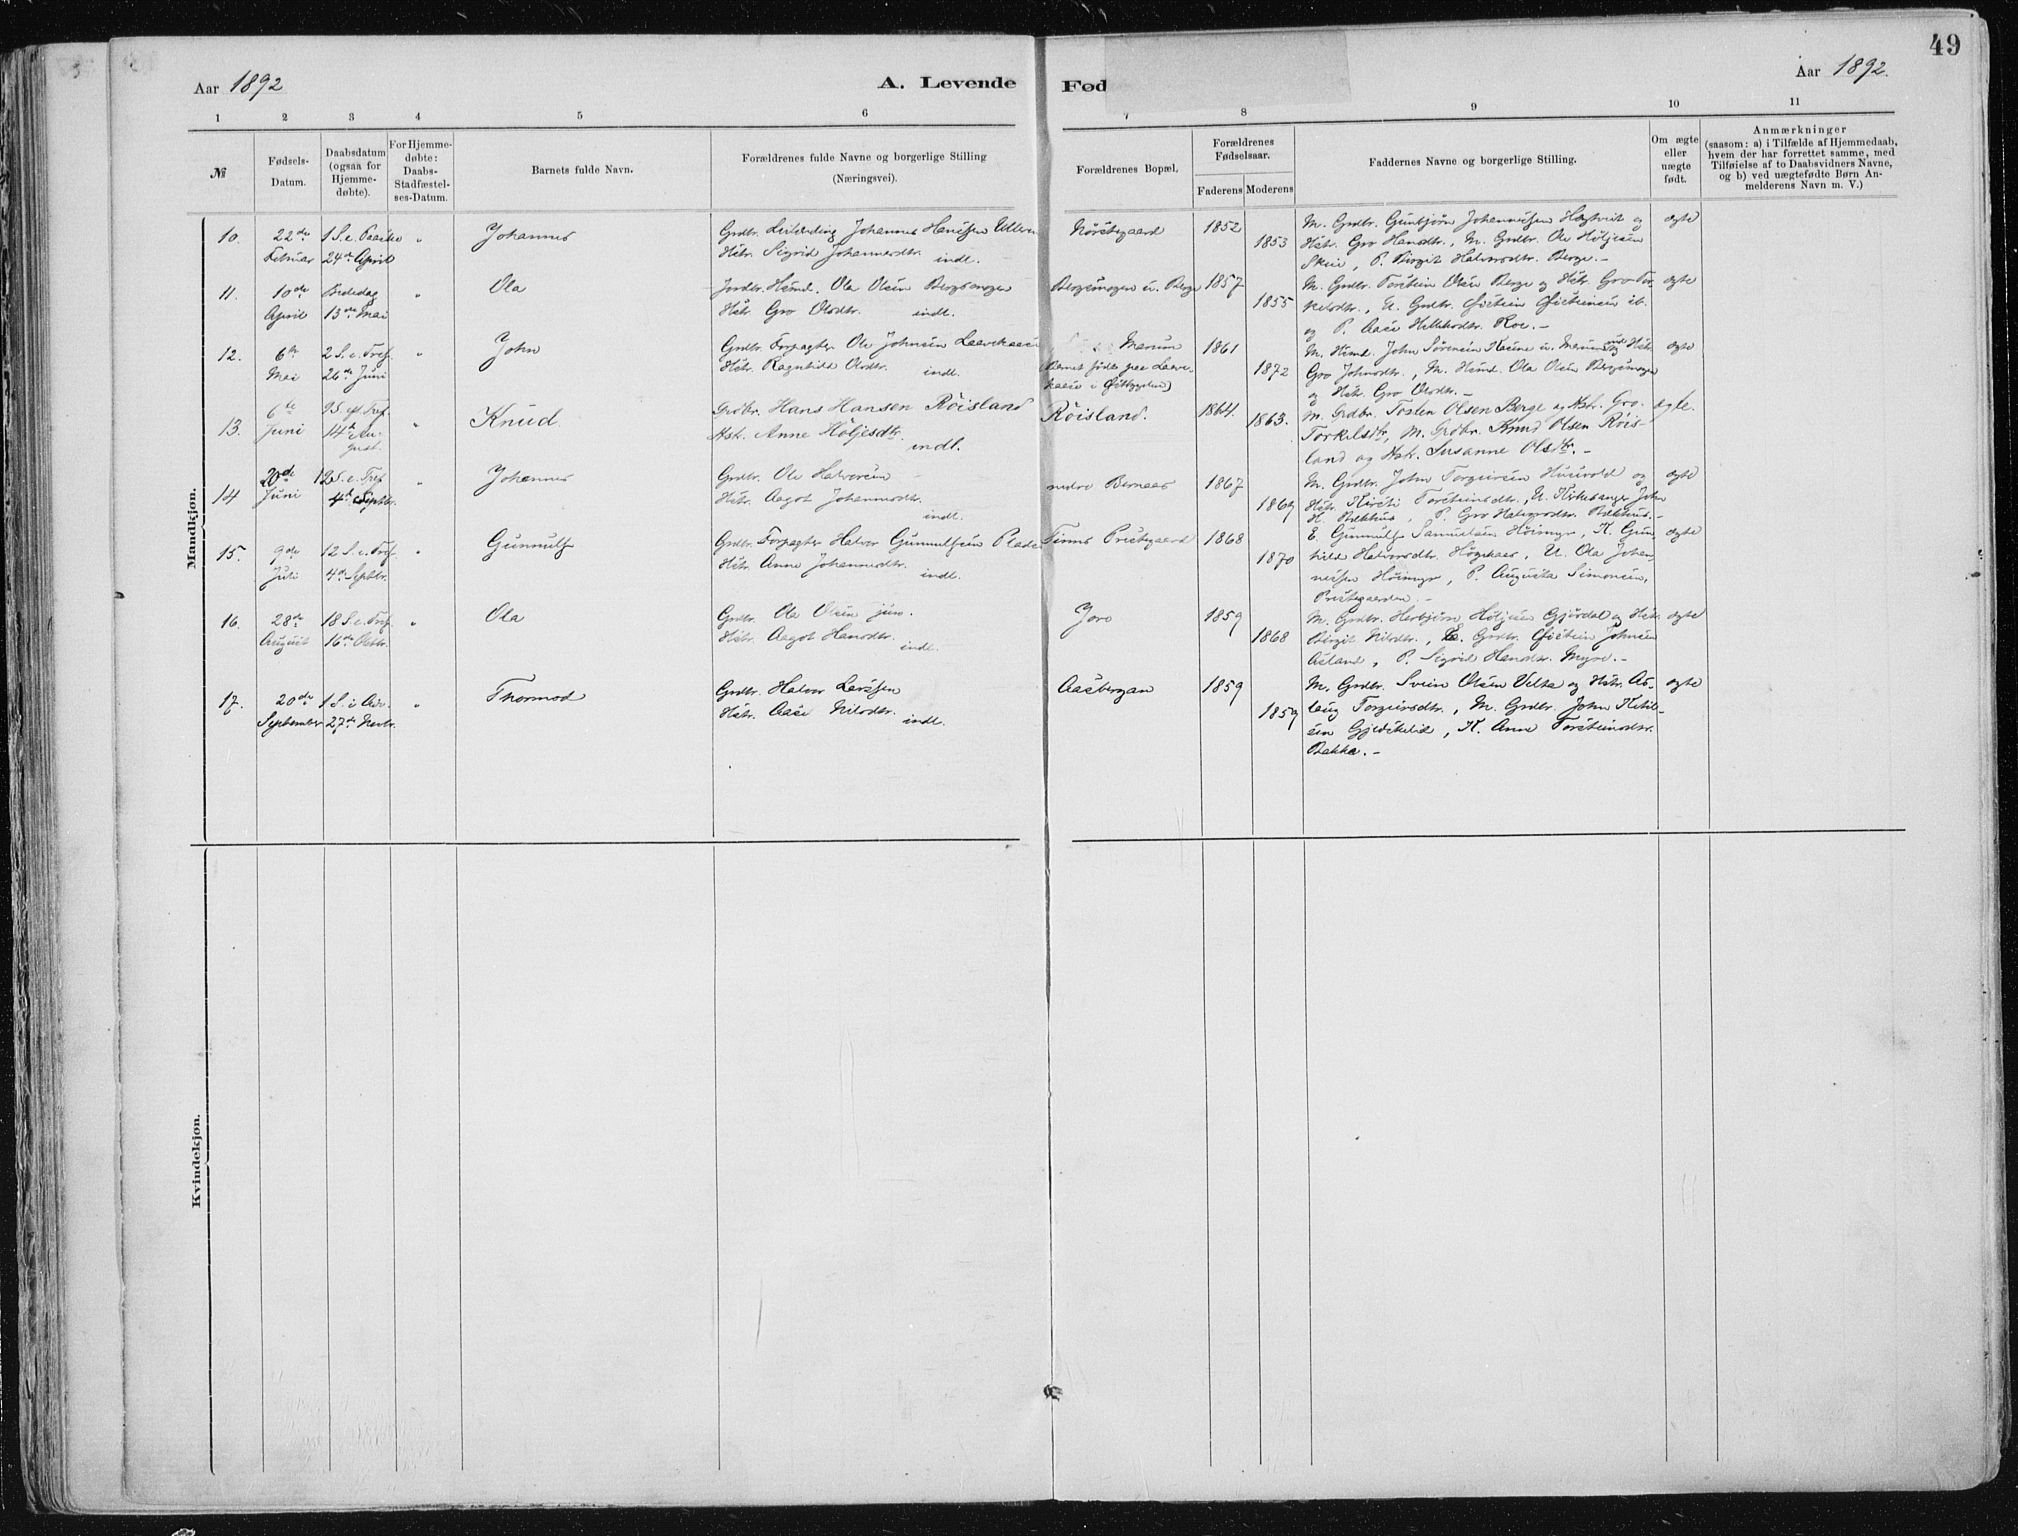 49
Aar 1892
A. Levende
Fød
Aar 1892.
1 2 3 4 5 6
7 8 9 10 11
№
Fødsels-
Datum.
Daabsdatum
(ogsaa for
Hjemme-
døbte).
For Hjemme-
døbte:
Daabs-
Stadfæstel-
ses-Datum.
Barnets fulde Navn.
Forældrenes fulde Navne og borgerlige Stilling
(Næringsvei).
Forældrenes Bopæl.
Forældrenes
Fødselsaar.
Faderens Moderens
Faddernes Navne og borgerlige Stilling.
Om ægte
eller
uægte
født.
Anmærkninger
(saasom: a) i Tilfælde af Hjemmedaab,
hvem der har forrettet samme, med
Tilføielse af to Daabsvidners Navne,
og b) ved uægtefødte Børn An-
melderens Navn m. V.)
Mandkjøn.
10. 22de Februar
1 S. e. Paaske 24de April
"
Johannes
Grdbr. Johannes Hanssen
Hstr. Sigrid Johannesdtr. indl.
Nørstegaard
1852
1853
M. Grdbr. Gunbjørn Johannessen Hægtveit og
Hstr. Gro Hansdtr., M. Grdbr. Ole Høljesen
Skeie, P. Birgit Halvorsdtr. Berge. -
ægte
11. 10de April
Bededag 13de Mai
"
Ola
Jordbr. Husmd. Ola Olsen Bergsmogen
Hstr. Gro Olsdtr. indl.
Bergsmogen u. Berge
1857
1855
M. Grdbr. Torstein Olsen Berge og Hstr. Gro Tor-
kelsdtr., U. Grdbr. Øistein Øisteinsen ib.
og P. Aase Roe. -
ægte
12. 6te Mai
2 S. e. Tref. 26de Juni
"
John
Grdbr. Forpagter Ole Johnsen
Hstr. Ragnhild Olsdtr. indl.
Mærum
(Barnet født paa
i Østbygden)
1861
1872
M. Husmd. John Sørensen u. Mærum og Hstr.
Gro Johnsdtr., M. Husmd. Ola Olsen Bergsmogen
og Hstr. Gro Olsdtr. -
ægte
13. 6te Juni
9 S. eft. Tref. 14de August.
"
Knud
Grdbr. Hans Hansen Røisland
Hstr. Anne Høljesdtr. indl.
Røisland.
1864.
1863.
M. Grdbr. Tosten Olsen Berge og Hstr. Gro
Torkelsdtr, M. Grdbr. Knud Olsen Røis-
land og Hstr. Susanne Olsdtr. -
ægte.
14 20de Juni
12 S. e. Tref 4de Septbr.
Johannes
Grdbr. Ole Halvorsen
Hstr. Aagot Johannesdtr. indl.
nedre Bernaas
1867
1869
M. Grdbr. John Torgersen og
Hstr. Kirsti Torsteinsdtr., U. Kirkesanger John
H. Bækhus, P. Gro Halvorsdtr. Bækhus. -
ægte
15. 9de Juli
12 S. e. Tref. 4de Septbr.
"
Gunnulf
Grdbr. Forpagter Halvor Gunnulfsen
Hstr. Anne Johannesdtr. indl.
Tinns Prestegaard
1868
1870
E. Gunnulf Samuelsen Høimyr, K. Gun-
hild Halvorsdtr. U. Ola Johan-
nessen Høimyr, P. Augusta Simonsen,
Prestegaarden. -
ægte
16. 28de August
18 S. e. Tref. 16de Oktbr.
"
Ola
Grdbr. Ola Olsen jun.
Hstr. Aagot Hansdtr. indl.
Jore
1859
1868
M. Grdbr. Herbjørn Høljesen Gjørdal og Hstr.
Birgit Nilsdtr., E. Grdbr. Øistein Johnsen
Aasland, P. Sigrid Hansdtr. Myre. -
ægte
17. 20de September
1 S. i Adv. 27de Novbr.
"
Thormod
Grdbr. Halvor Larssen
Hstr. Aase Nilsdtr. indl.
Aasbergan
1859
1859
M. Grdbr. Svein Olsen Velta og Hstr. As-
laug Torgeirsdtr., M. Grdbr. John Ketil-
sen, K. Anne Torsteinsdtr.
Bakka. -
ægte
Kvindekjøn.